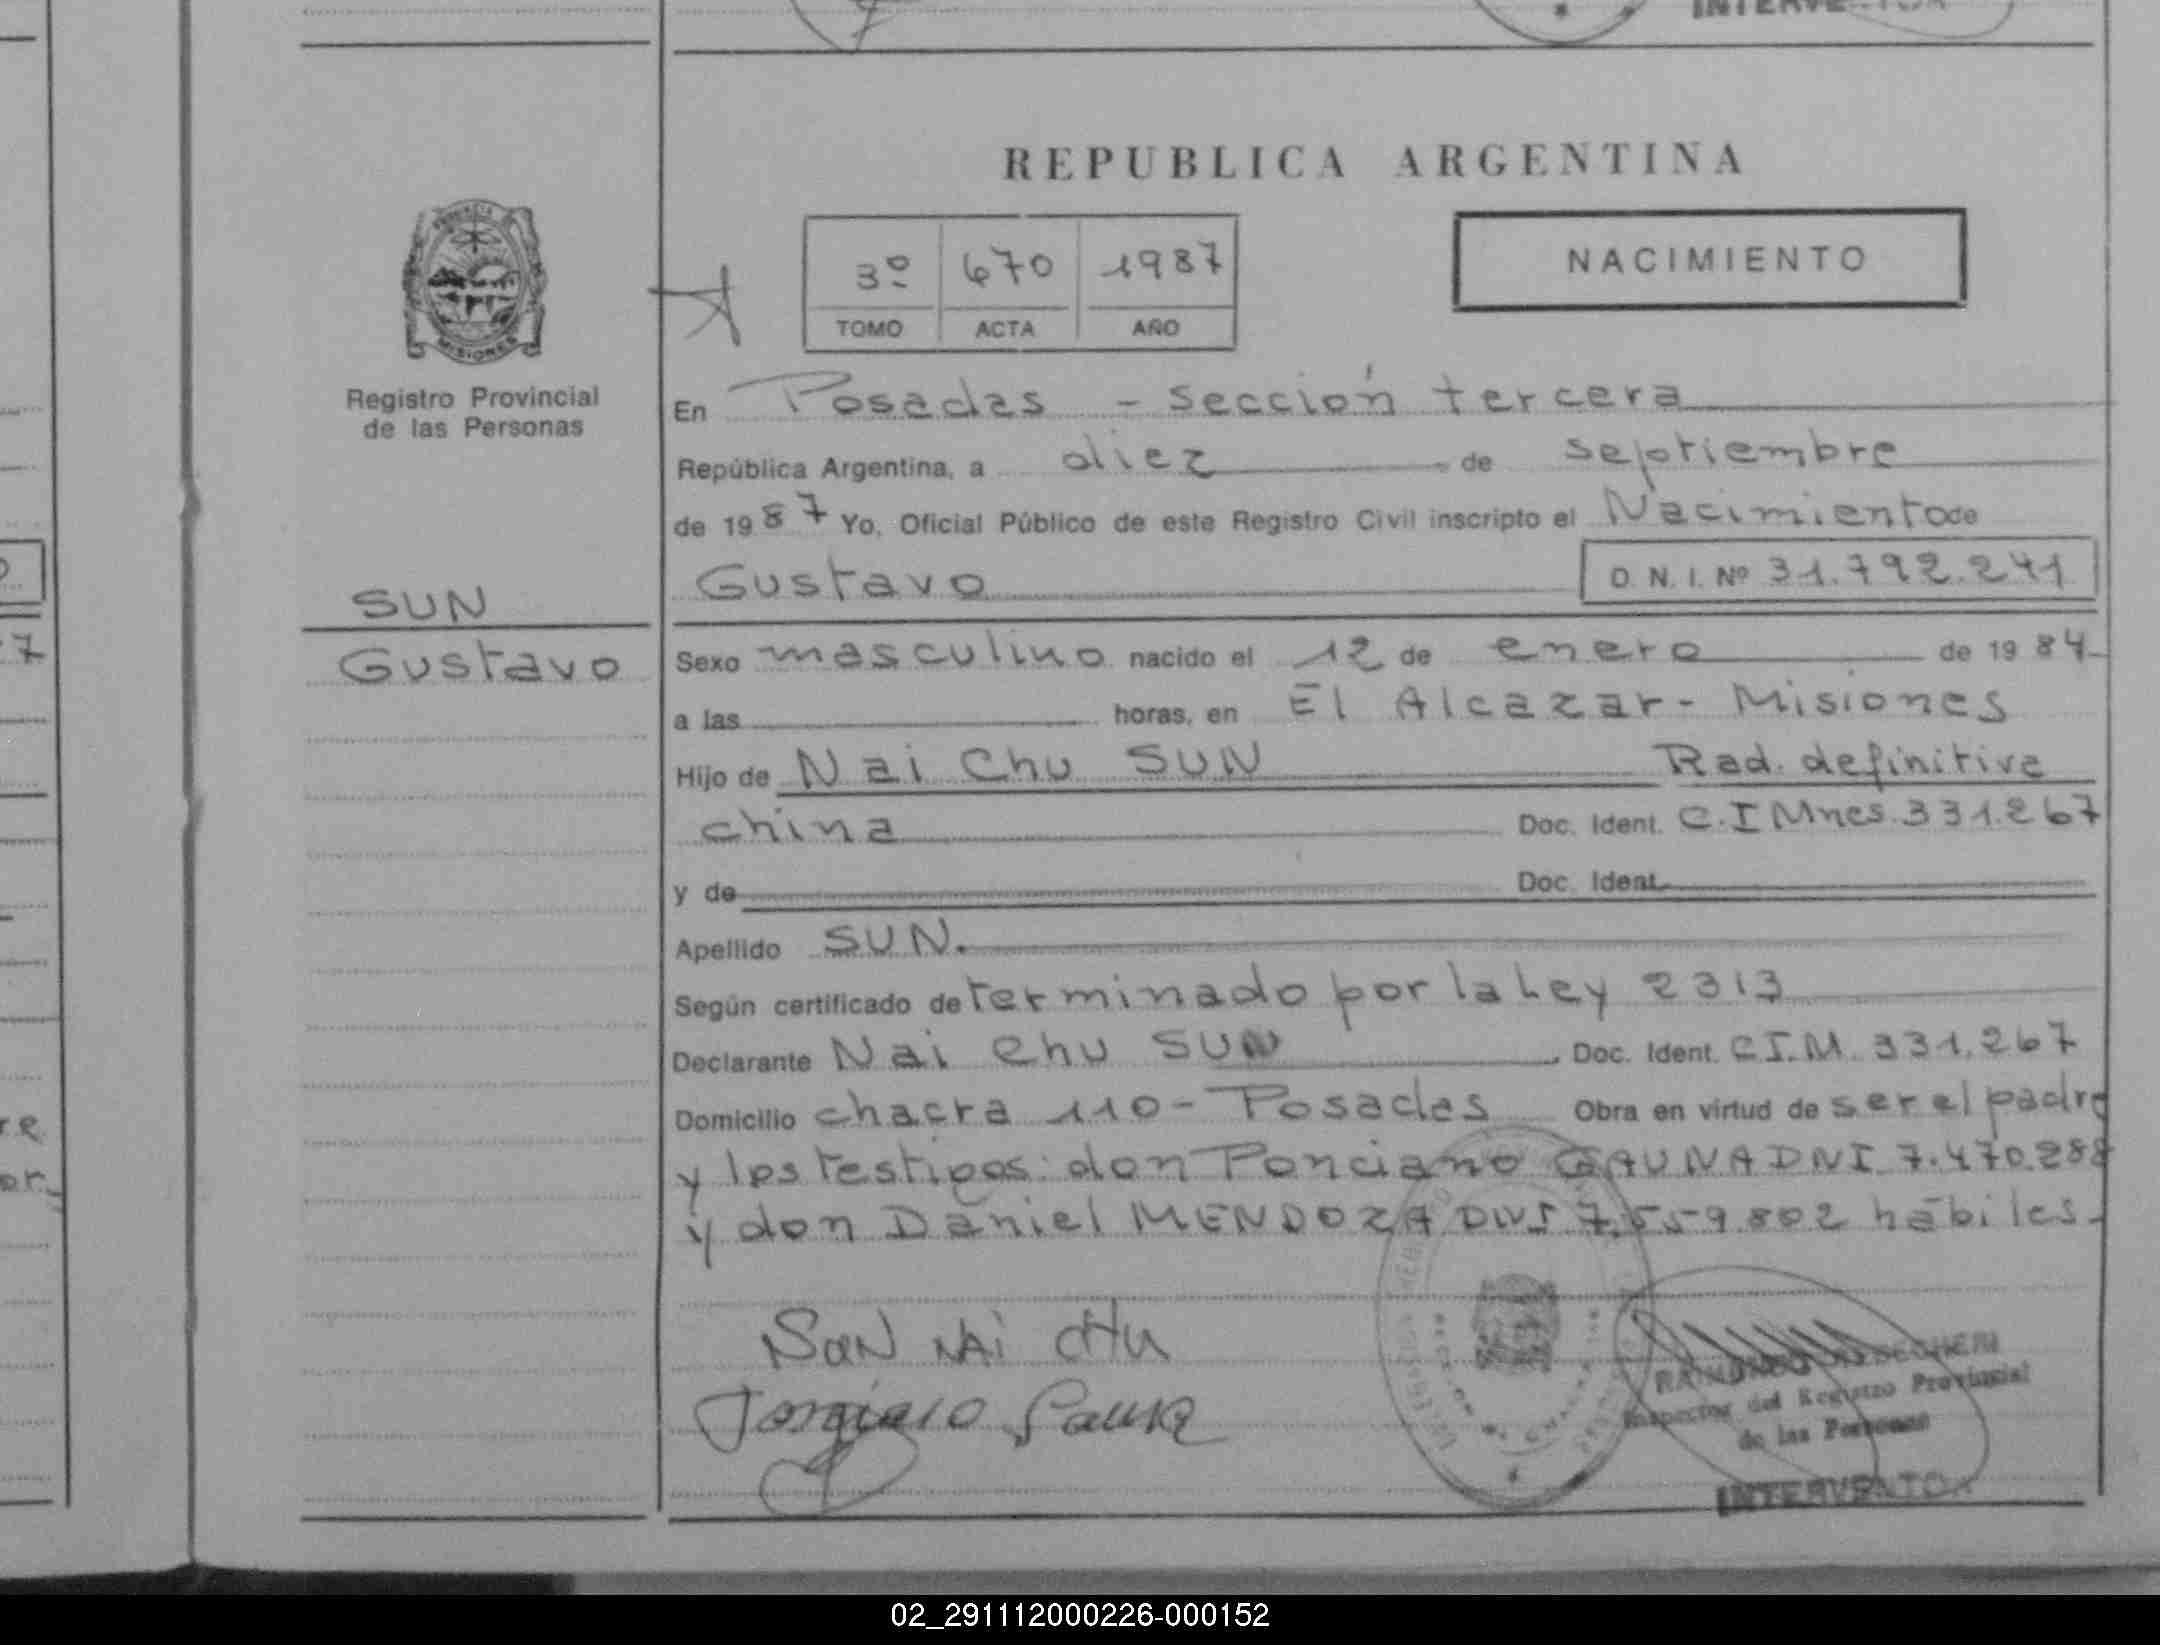 REPUBLICA ARGENTINA
3º 670 1987
TOMO ACTA AÑO
NACIMIENTO
MISIONES
Registro Provincial
de las Personas
SUN
Gustavo
En Posadas - sección tercera
República Argentina, a diez de septiembre
de 1987 Yo, Oficial Público de este Registro Civil inscripto el Nacimiento de
Gustavo D.N.I. Nº 31.792.241
Sexo masculino nacido el 12 de enero de 1984
a las horas, en El Alcazar - Misiones
Hijo de Nai Chu SUN Rad. definitiva
china Doc. Ident. C.I Mnes. 331.267
y de Doc. Ident.
Apellido SUN.
Según certificado determinado por la Ley 2313
Declarante Nai Chu SUN Doc. Ident. C.I.M. 331.267
Domicilio chacra 110 - Posadas Obra en virtud de ser el padre
y los testigos: don Ponciano GAUNA DNI 7.470.288
y don Daniel MENDOZA DNI 7.559.802 hábiles.
SUN NAI CHU
Inspector del Registro Provincial
de las Personas
INTERVENTOR
02_291112000226-000152